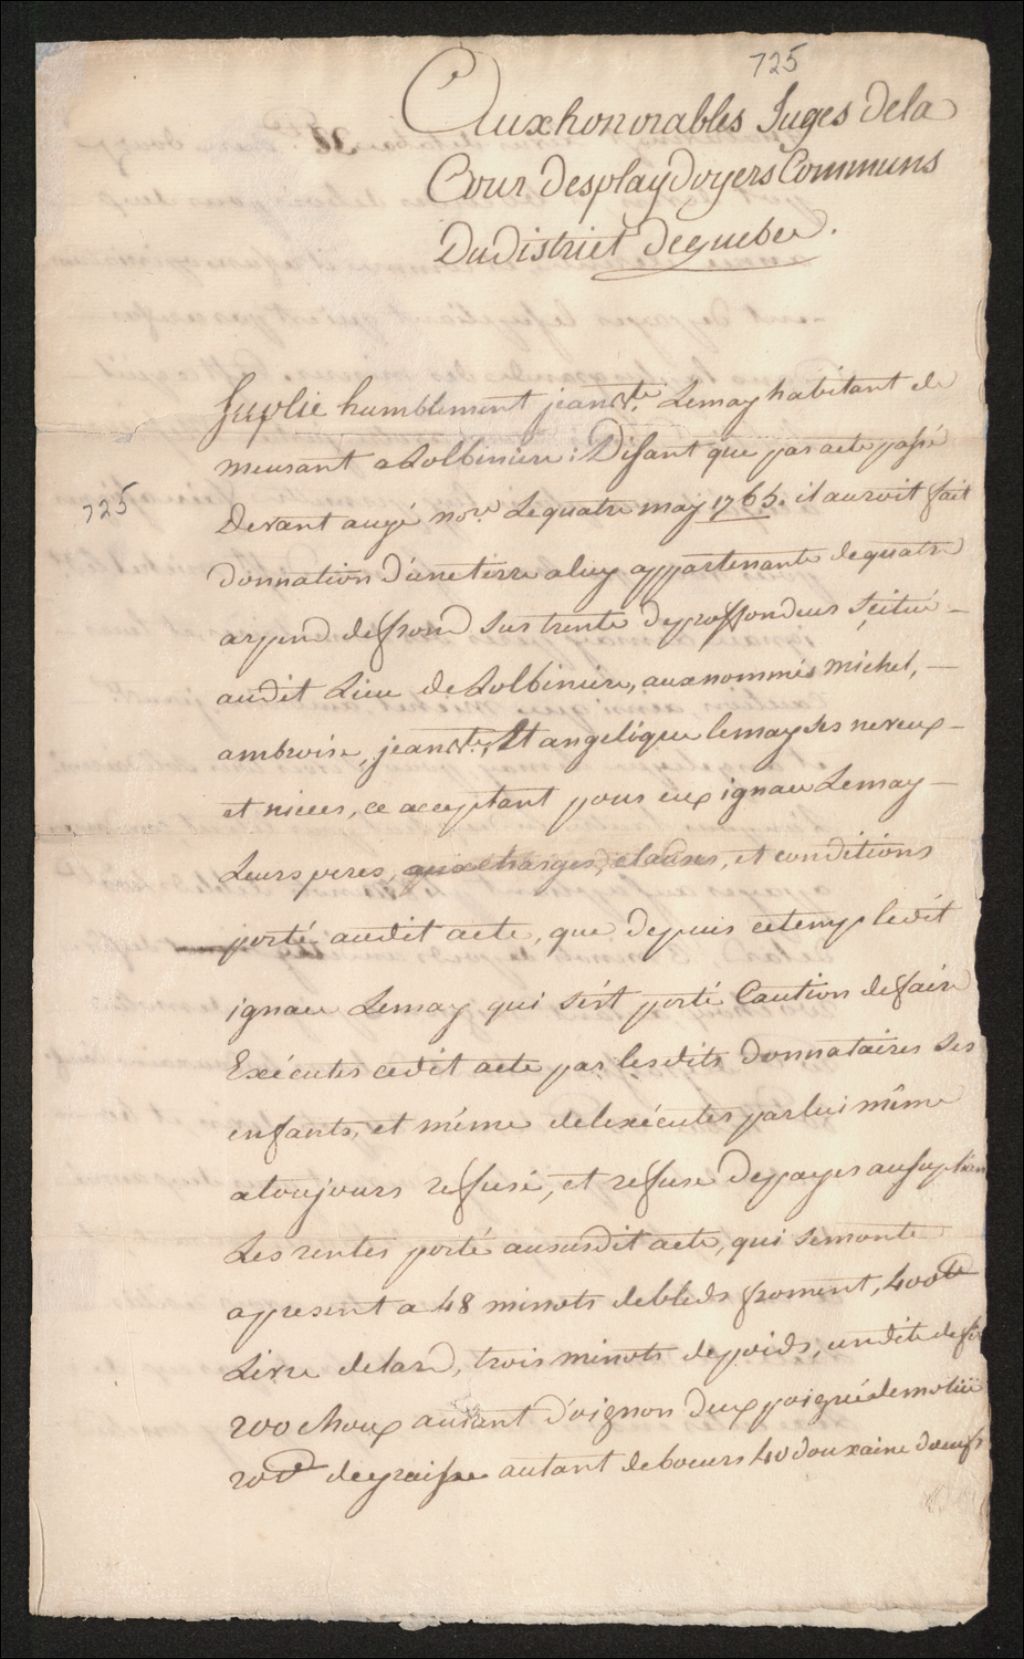 725
Aux honorables Juges de la
Cour des playdoyers Communs
Du District de quebec.
Suplie humblement jean Bte. Lemay habitant de
meurant a Lolbiniere : Disant que par acte passé
725
Devant augé nore. Le quatre may 1765. il auroit fait
donnation d'une terre a luy appartenante de quatre
arpend de frond sur trente de proffondeur scitué -
audit Lieu de Lolbiniere, aux nommés michel, -
ambroise, jean Bte, Et angelique lemay ses neveux -
et nieces, ce acceptant pour eux ignace Lemay -
Leurs peres, aux charges, clauses, et conditions
porté audit acte, que depuis ce temp ledit
ignace Lemay qui s'est porté Caution de faire
Exécuter cedit acte par lesdits Donnataires ses
enfants, et même de lexécuter par lui même
a toujours refusé, et refuse de payer au suplian
Les rentes porté au susdit acte, qui se monte
a present a 48 minots de bleds froment, 400 lb
Livre de lard, trois minots de poids, un dite de
200 choux autant d'oignon deux poignée de
20 lb de graisse autant de beurs 40 douxaine d'oeufs